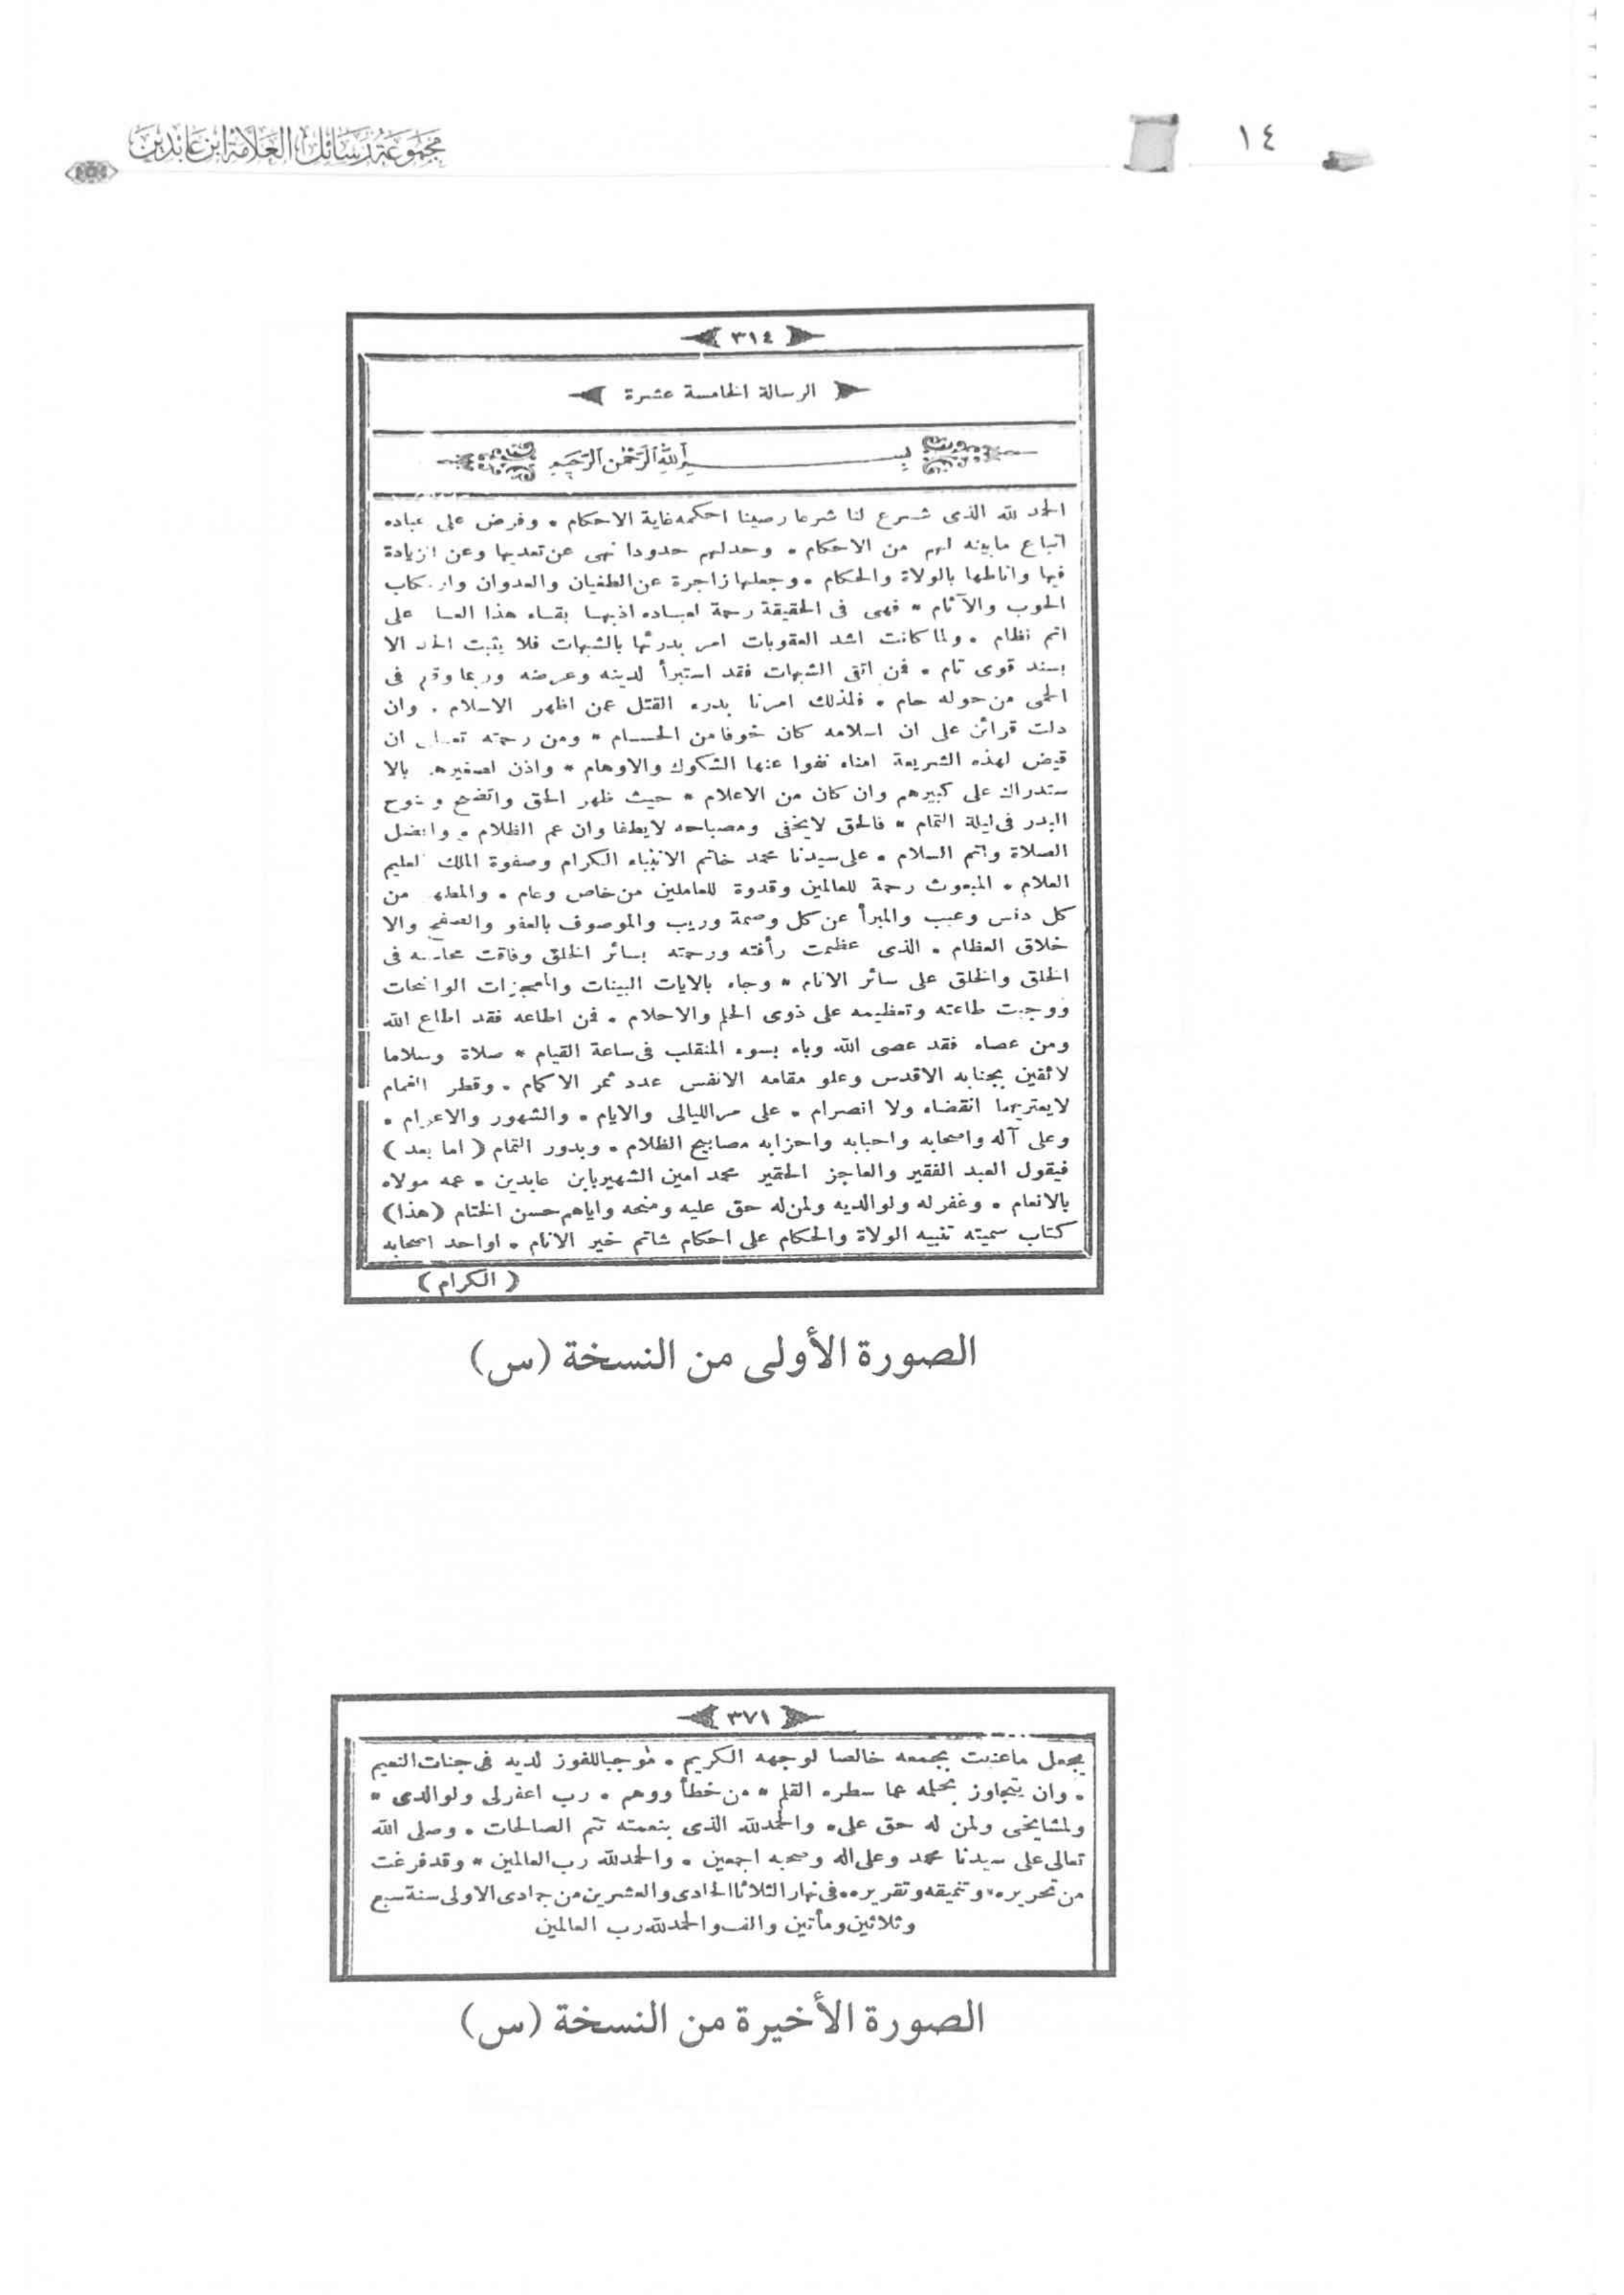 ١٤
مجموعة رسائل العلامة ابن عابدين
٣١٤
الرسالة الخامسة عشرة
بسم الله الرحمن الرحيم
الحمد لله الذى شرع لنا شرعا رصينا احكمه غاية الاحكام * وفرض على عباده
اتباع مابينه لهم من الاحكام * وحدلهم حدودا نهى عن تعديها وعن الزيادة
فيها واناطها بالولاة والحكام * وجعلها زاجرة عن الطغيان والعدوان وارتكاب
الحوب والآثام * فهى فى الحقيقة رحمة لعباده اذبها بقاء هذا العا على
اتم نظام * ولما كانت اشد العقوبات امر بدرئها بالشبهات فلا يثبت الحد الا
بسند قوى تام * فمن اتقى الشبهات فقد استبرأ لدينه وعرضه وربما وقع فى
الحمى من حوله حام * فلذلك امرنا بدرء القتل عمن اظهر الاسلام * وان
دلت قرائن على ان اسلامه كان خوفا من الحسام * ومن رحمته تعالى ان
قيض لهذه الشريعة امناء نفوا عنها الشكوك والاوهام * واذن لصغيرهم بالا
ستدراك على كبيرهم وان كان من الاعلام * حيث ظهر الحق واتضح وضوح
البدر فى ليلة التمام * فالحق لايخفى ومصباحه لايطفا وان عم الظلام * وافضل
الصلاة واتم السلام * على سيدنا محمد خاتم الانبياء الكرام وصفوة الملك العليم
العلام * المبعوث رحمة للعالمين وقدوة للعاملين من خاص وعام * والمطهر من
كل دنس وعيب والمبرأ عن كل وصمة وريب والموصوف بالعفو والصفح والا
خلاق العظام * الذى عظمت رأفته ورحمته بسائر الخلق وفاقت محاسنه فى
الخلق والخلق على سائر الانام * وجاء بالايات البينات والمعجزات الواضحات
ووجبت طاعته وتعظيمه على ذوى الحلم والاحلام * فمن اطاعه فقد اطاع الله
ومن عصاه فقد عصى الله وباء بسوء المنقلب فى ساعة القيام * صلاة وسلاما
لائقين بجنابه الاقدس وعلو مقامه الانفس عدد ثمر الاكمام * وقطر الغمام
لايعتريهما انقضاء ولا انصرام * على مر الليالى والايام * والشهور والاعوام *
وعلى آله واصحابه واحبابه واحزابه مصابيح الظلام * وبدور التمام (اما بعد)
فيقول العبد الفقير والعاجز الحقير محمد امين الشهير بابن عابدين * عمه مولاه
بالانعام * وغفر له ولوالديه ولمن له حق عليه ومنحه واياهم حسن الختام (هذا)
كتاب سميته تنبيه الولاة والحكام على احكام شاتم خير الانام * او احد اصحابه
(الكرام)
الصورة الأولى من النسخة (س)
٣٧١
يجعل ماعنيت بجمعه خالصا لوجهه الكريم * موجبا للفوز لديه فى جنات النعيم
* وان يتجاوز بحلمه عما سطره القلم * من خطأ ووهم * رب اغفر لى ولوالدى *
ولمشايخى ولمن له حق على * والحمدلله الذى بنعمته تتم الصالحات * وصلى الله
تعالى على سيدنا محمد وعلى اله وصحبه اجمعين * والحمدلله رب العالمين * وقد فرغت
من تحريره * وتنميقه وتقريره * فى نهار الثلاثا الحادى والعشرين من جمادى الاولى سنة سبع
وثلاثين ومأتين والف والحمدلله رب العالمين
الصورة الأخيرة من النسخة (س)